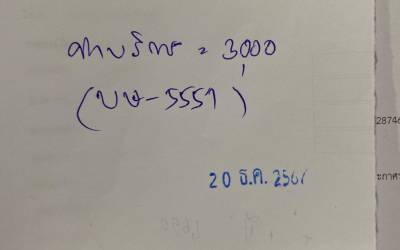 ค่าบริการ = 3,000
(บษ-5551)
20 ธ.ค. 2567
28746